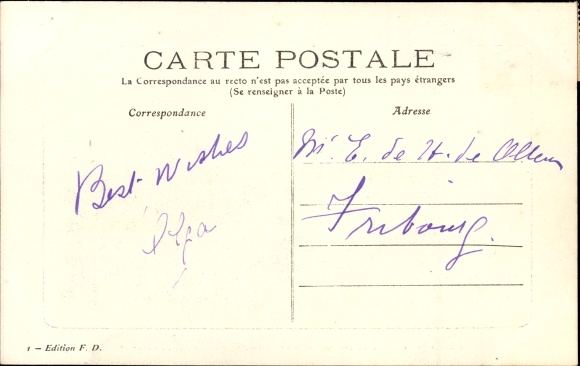 CARTE POSTALE
La Correspondance au recto n'est pas acceptée par tous les pays étrangers
(Se renseigner à la Poste)
Correspondance
Adresse
Best Wishes
Olga
Mr. E. de H. de
Fribourg.
1 — Edition F. D.